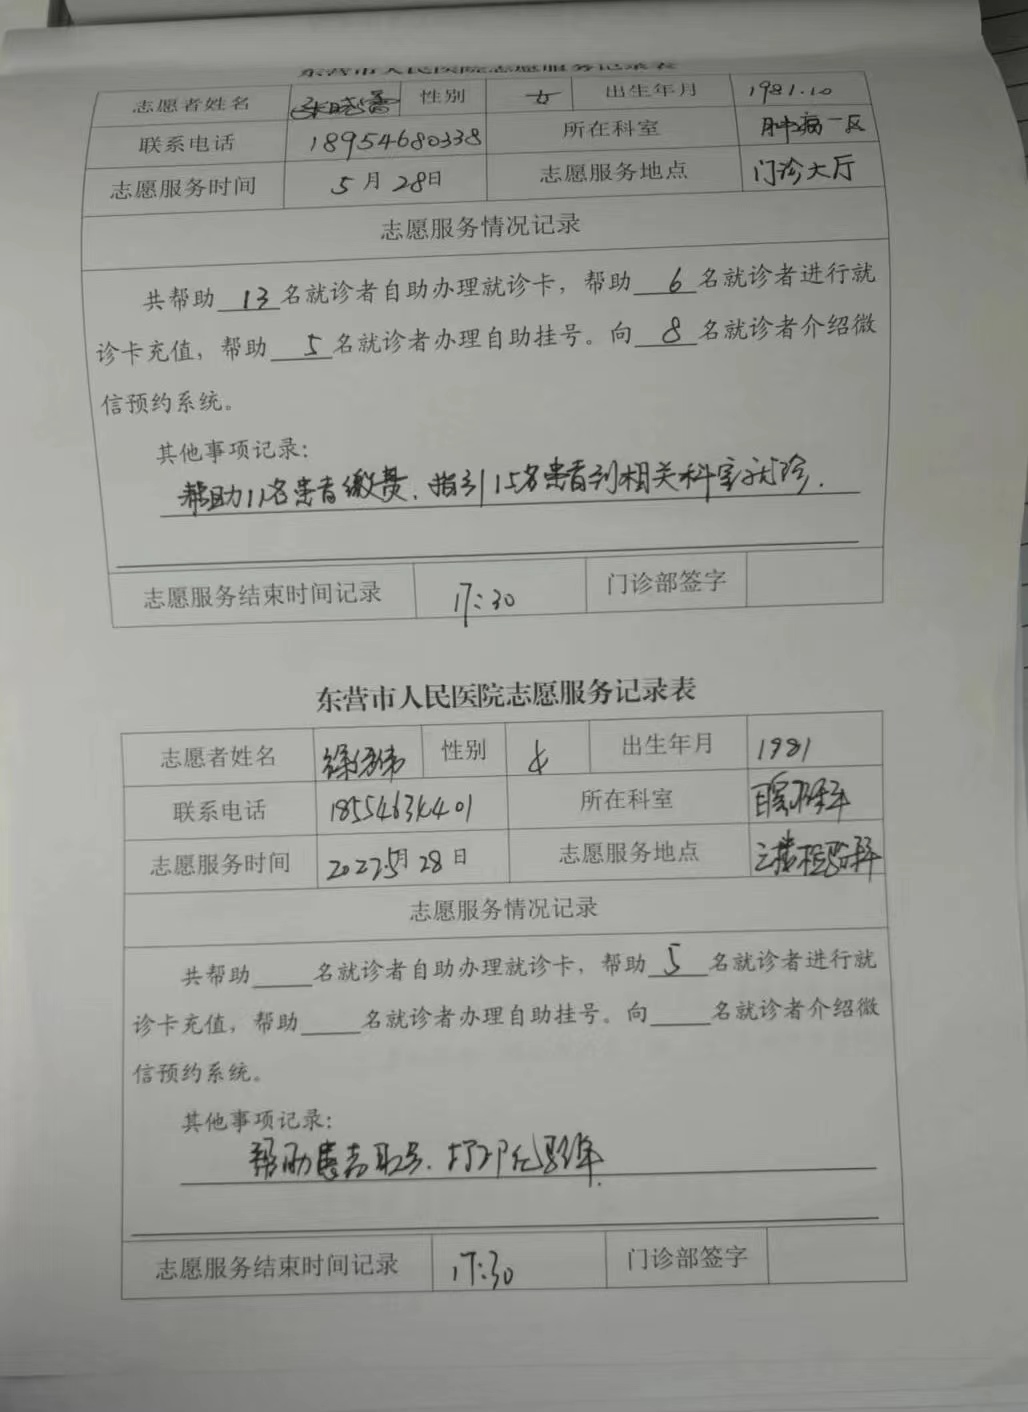 东营市人民医院志愿服务记录表
志愿者姓名 张晓蕾 性别 女 出生年月 1981.10
联系电话 18954680338 所在科室 肿瘤一区
志愿服务时间 5月28日 志愿服务地点 门诊大厅
志愿服务情况记录
共帮助13名就诊者自助办理就诊卡，帮助6名就诊者进行就
诊卡充值，帮助5名就诊者办理自助挂号。向8名就诊者介绍微
信预约系统。
其他事项记录：
帮助11名患者缴费，指引15名患者到相关科室就诊.
志愿服务结束时间记录 17:30 门诊部签字
东营市人民医院志愿服务记录表
志愿者姓名 性别 女 出生年月 1981
联系电话 所在科室
志愿服务时间 2022.5月28日 志愿服务地点 三楼检验科
志愿服务情况记录
共帮助____名就诊者自助办理就诊卡，帮助5名就诊者进行就
诊卡充值，帮助____名就诊者办理自助挂号。向____名就诊者介绍微
信预约系统。
其他事项记录：
帮助患者取号、打印化验单.
志愿服务结束时间记录 17:30 门诊部签字